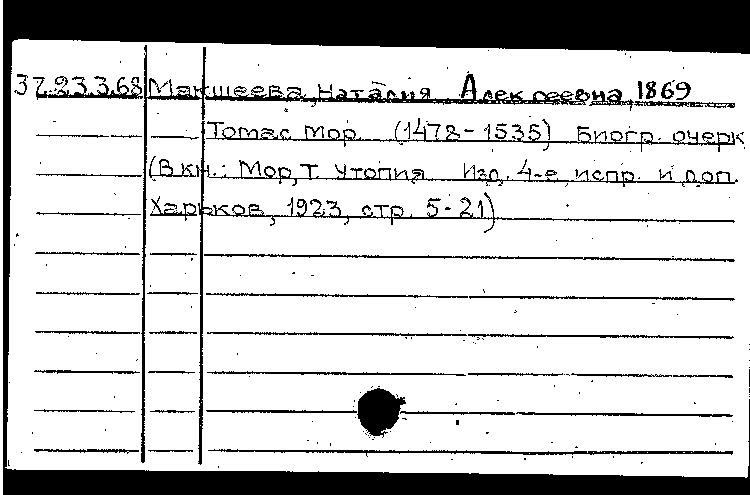 37.23.3.68 Макшеева, Наталия Алексеевна, 1869
Томас Мор (1478-1535) Биогр. очерк
(В кн.: Мор, Т. Утопия Изд. 4-е, испр. и доп.
Харьков, 1923, стр. 5-21)